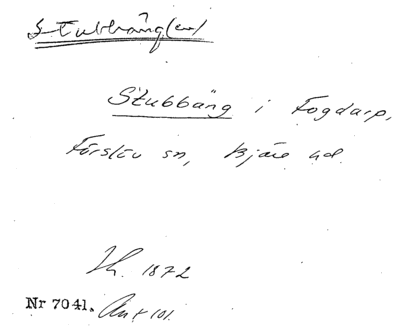 Stubbäng(en)
Stubbäng i Fogdarp,
Förslöv sn, Bjäre hd.
1872
Nr 7041. Ant 101.